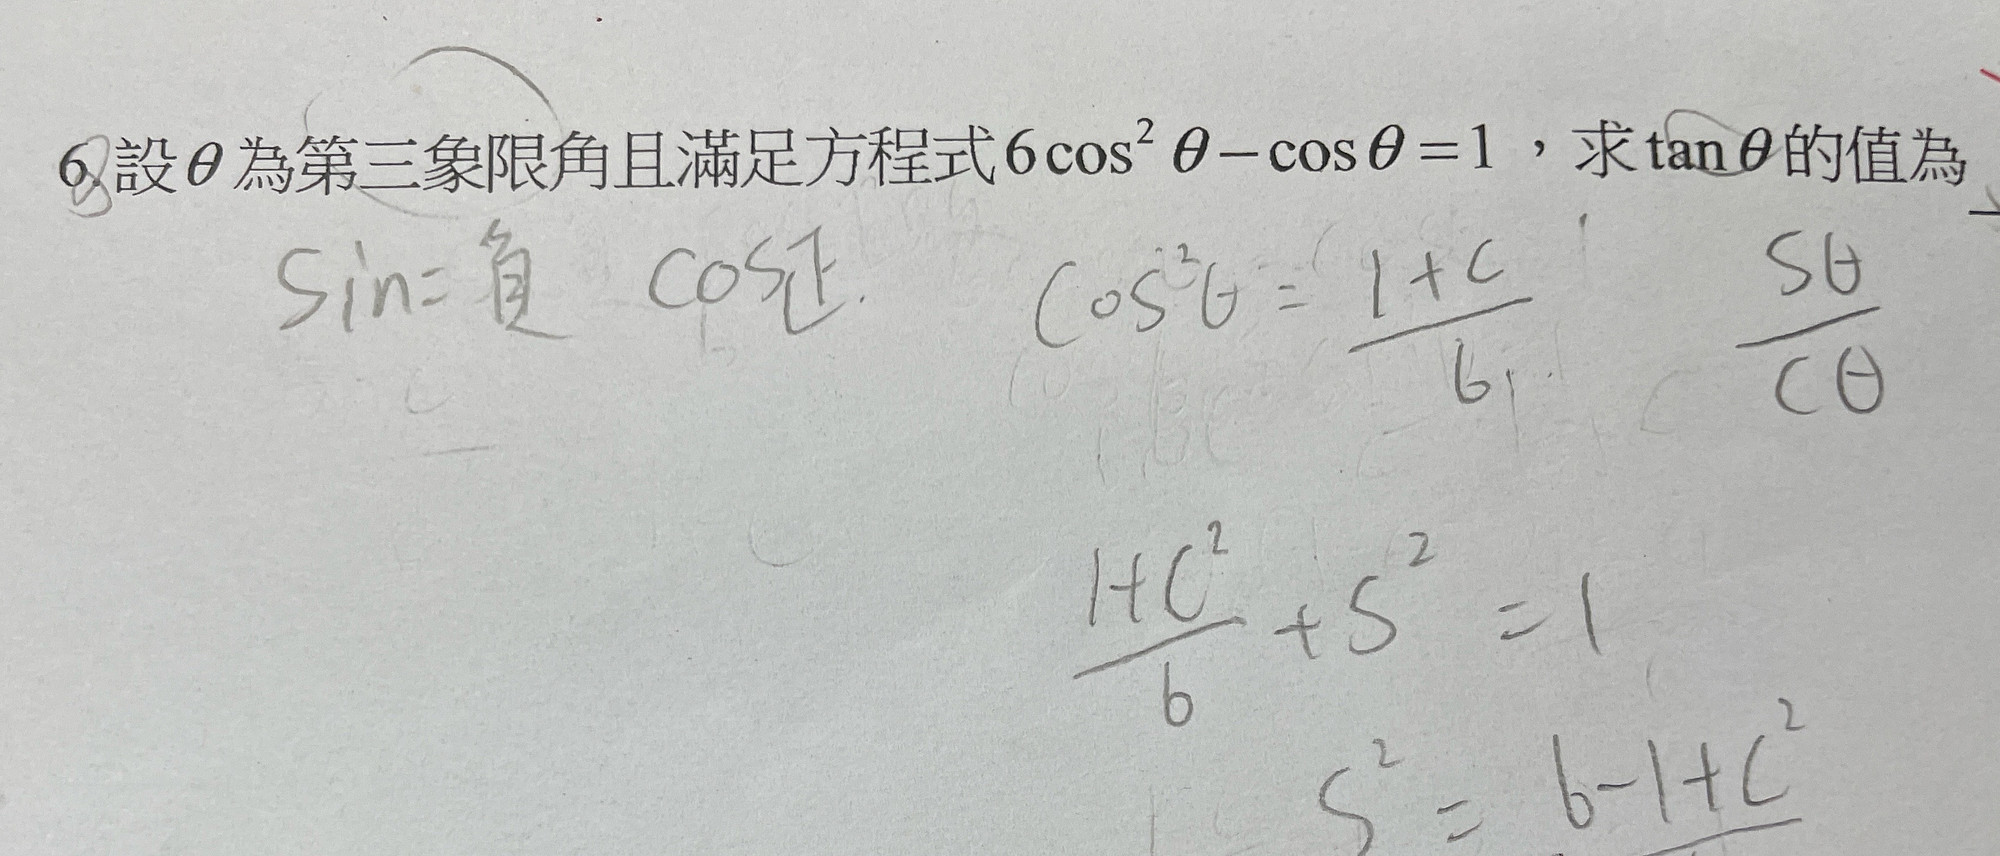 6. 設θ為第三象限角且滿足方程式6cos² θ－cosθ＝1，求tanθ的值為
sin=負 cos正. cos²θ = (1+c)/6 Sθ/Cθ
(1+C²)/6 + S² = 1
S² = 6-1+C²